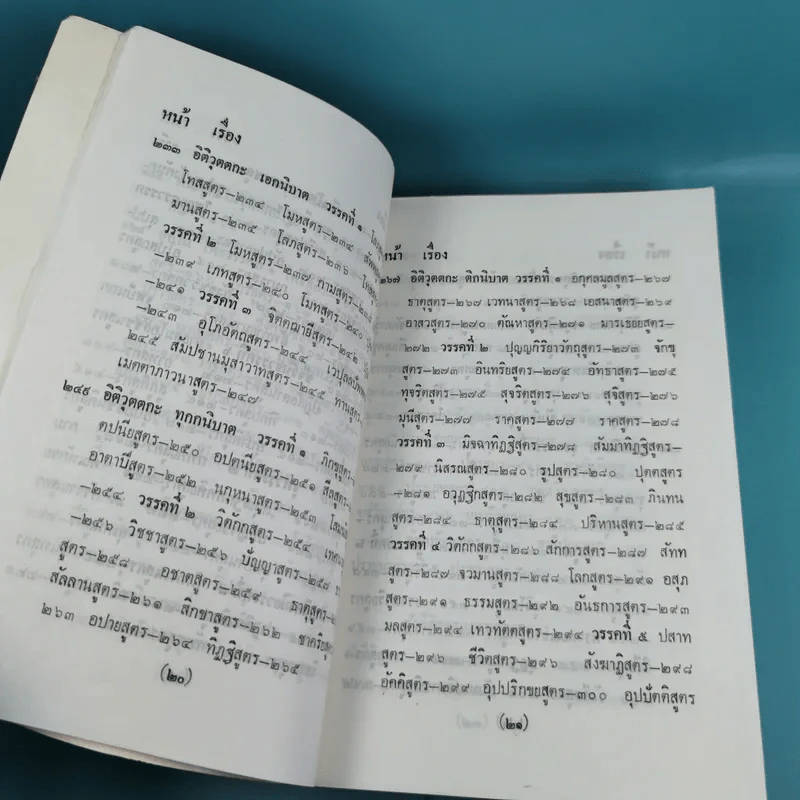 หน้า เรื่อง
๒๓๓ อิติวุตตกะ เอกนิบาต วรรคที่ ๑
โทสสูตร—๒๓๔ โมหสูตร—๒๓๔
มานสูตร—๒๓๕ โลภสูตร—๒๓๖
วรรคที่ ๒ โมหสูตร—๒๓๗ กามสูตร—
—๒๓๙ เภทสูตร—๒๔๐ โมทสูตร—๒๔๐
—๒๔๑ วรรคที่ ๓ จิตตฌายีสูตร—๒๔๒
—๒๔๓ อุโภอัตถสูตร—๒๔๔
๒๔๕ สัมปชานมุสาวาทสูตร—๒๔๕
เมตตาภาวนาสูตร—๒๔๗
๒๔๙ อิติวุตตกะ ทุกกนิบาต วรรคที่ ๑
ตปนียสูตร—๒๕๐ อปตนียสูตร—๒๕๑
อาตาปีสูตร—๒๕๒ นกุหนาสูตร—๒๕๓
—๒๕๔ วรรคที่ ๒ วิตักกสูตร—๒๕๔
—๒๕๖ วิชชาสูตร—๒๕๖ ปัญญาสูตร—๒๕๗
สูตร—๒๕๘ อชาตสูตร—๒๕๙
สัลลานสูตร—๒๖๑ สิกขาสูตร—๒๖๒
๒๖๓ อปายสูตร—๒๖๔ ทิฏฐิสูตร—๒๖๕
(๒๐)
หน้า เรื่อง
๒๖๗ อิติวุตตกะ ติกนิบาต วรรคที่ ๑ อกุศลมูลสูตร—๒๖๗
ธาตุสูตร—๒๖๗ เวทนาสูตร—๒๖๘ เอสนาสูตร—๒๖๙
อาสวสูตร—๒๗๐ ตัณหาสูตร—๒๗๑ มารเธยยสูตร—
—๒๗๒ วรรคที่ ๒ ปุญญกิริยาวัตถุสูตร—๒๗๓ จักขุ
สูตร—๒๗๓ อินทริยสูตร—๒๗๔ อัทธาสูตร—๒๗๕
ทุจริตสูตร—๒๗๕ สุจริตสูตร—๒๗๖ สุจิสูตร—๒๗๖
มุนีสูตร—๒๗๗ ราคสูตร—๒๗๗ ราคสูตร—๒๗๘
วรรคที่ ๓ มิจฉาทิฏฐิสูตร—๒๗๘ สัมมาทิฏฐิสูตร—
—๒๗๙ นิสรณสูตร—๒๘๐ รูปสูตร—๒๘๐ ปุตตสูตร
—๒๘๑ อวุฏฐิกสูตร—๒๘๒ สุขสูตร—๒๘๓ ภินทน
สูตร—๒๘๔ ธาตุสูตร—๒๘๔ ปริหานสูตร—๒๘๕
วรรคที่ ๔ วิตักกสูตร—๒๘๖ สักการสูตร—๒๘๗ สัทท
สูตร—๒๘๗ จวมานสูตร—๒๘๘ โลกสูตร—๒๙๑ อสุภ
สูตร—๒๙๑ ธรรมสูตร—๒๙๒ อันธการสูตร—๒๙๓
มลสูตร—๒๙๔ เทวทัตตสูตร—๒๙๔ วรรคที่ ๕ ปสาท
สูตร—๒๙๖ ชีวิตสูตร—๒๙๖ สังฆาฏิสูตร—๒๙๘
อัคคิสูตร—๒๙๙ อุปปริกขยสูตร—๓๐๐ อุปปัตติสูตร
(๒๑)